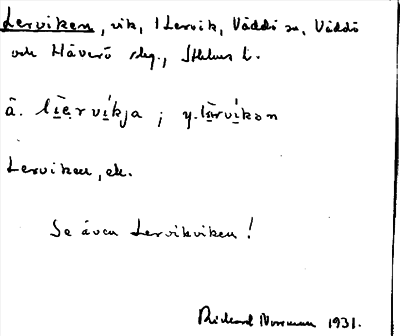 Lerviken, vik, i Lervik, Väddö sn, Väddö
och Häverö skg., Sthlms l.
ä. līe̯rvı̣́kja ; y. lǟrvı̣́kon
Lerviken, ek.
Se även Lervikviken!
Rickard Norrman 1931.